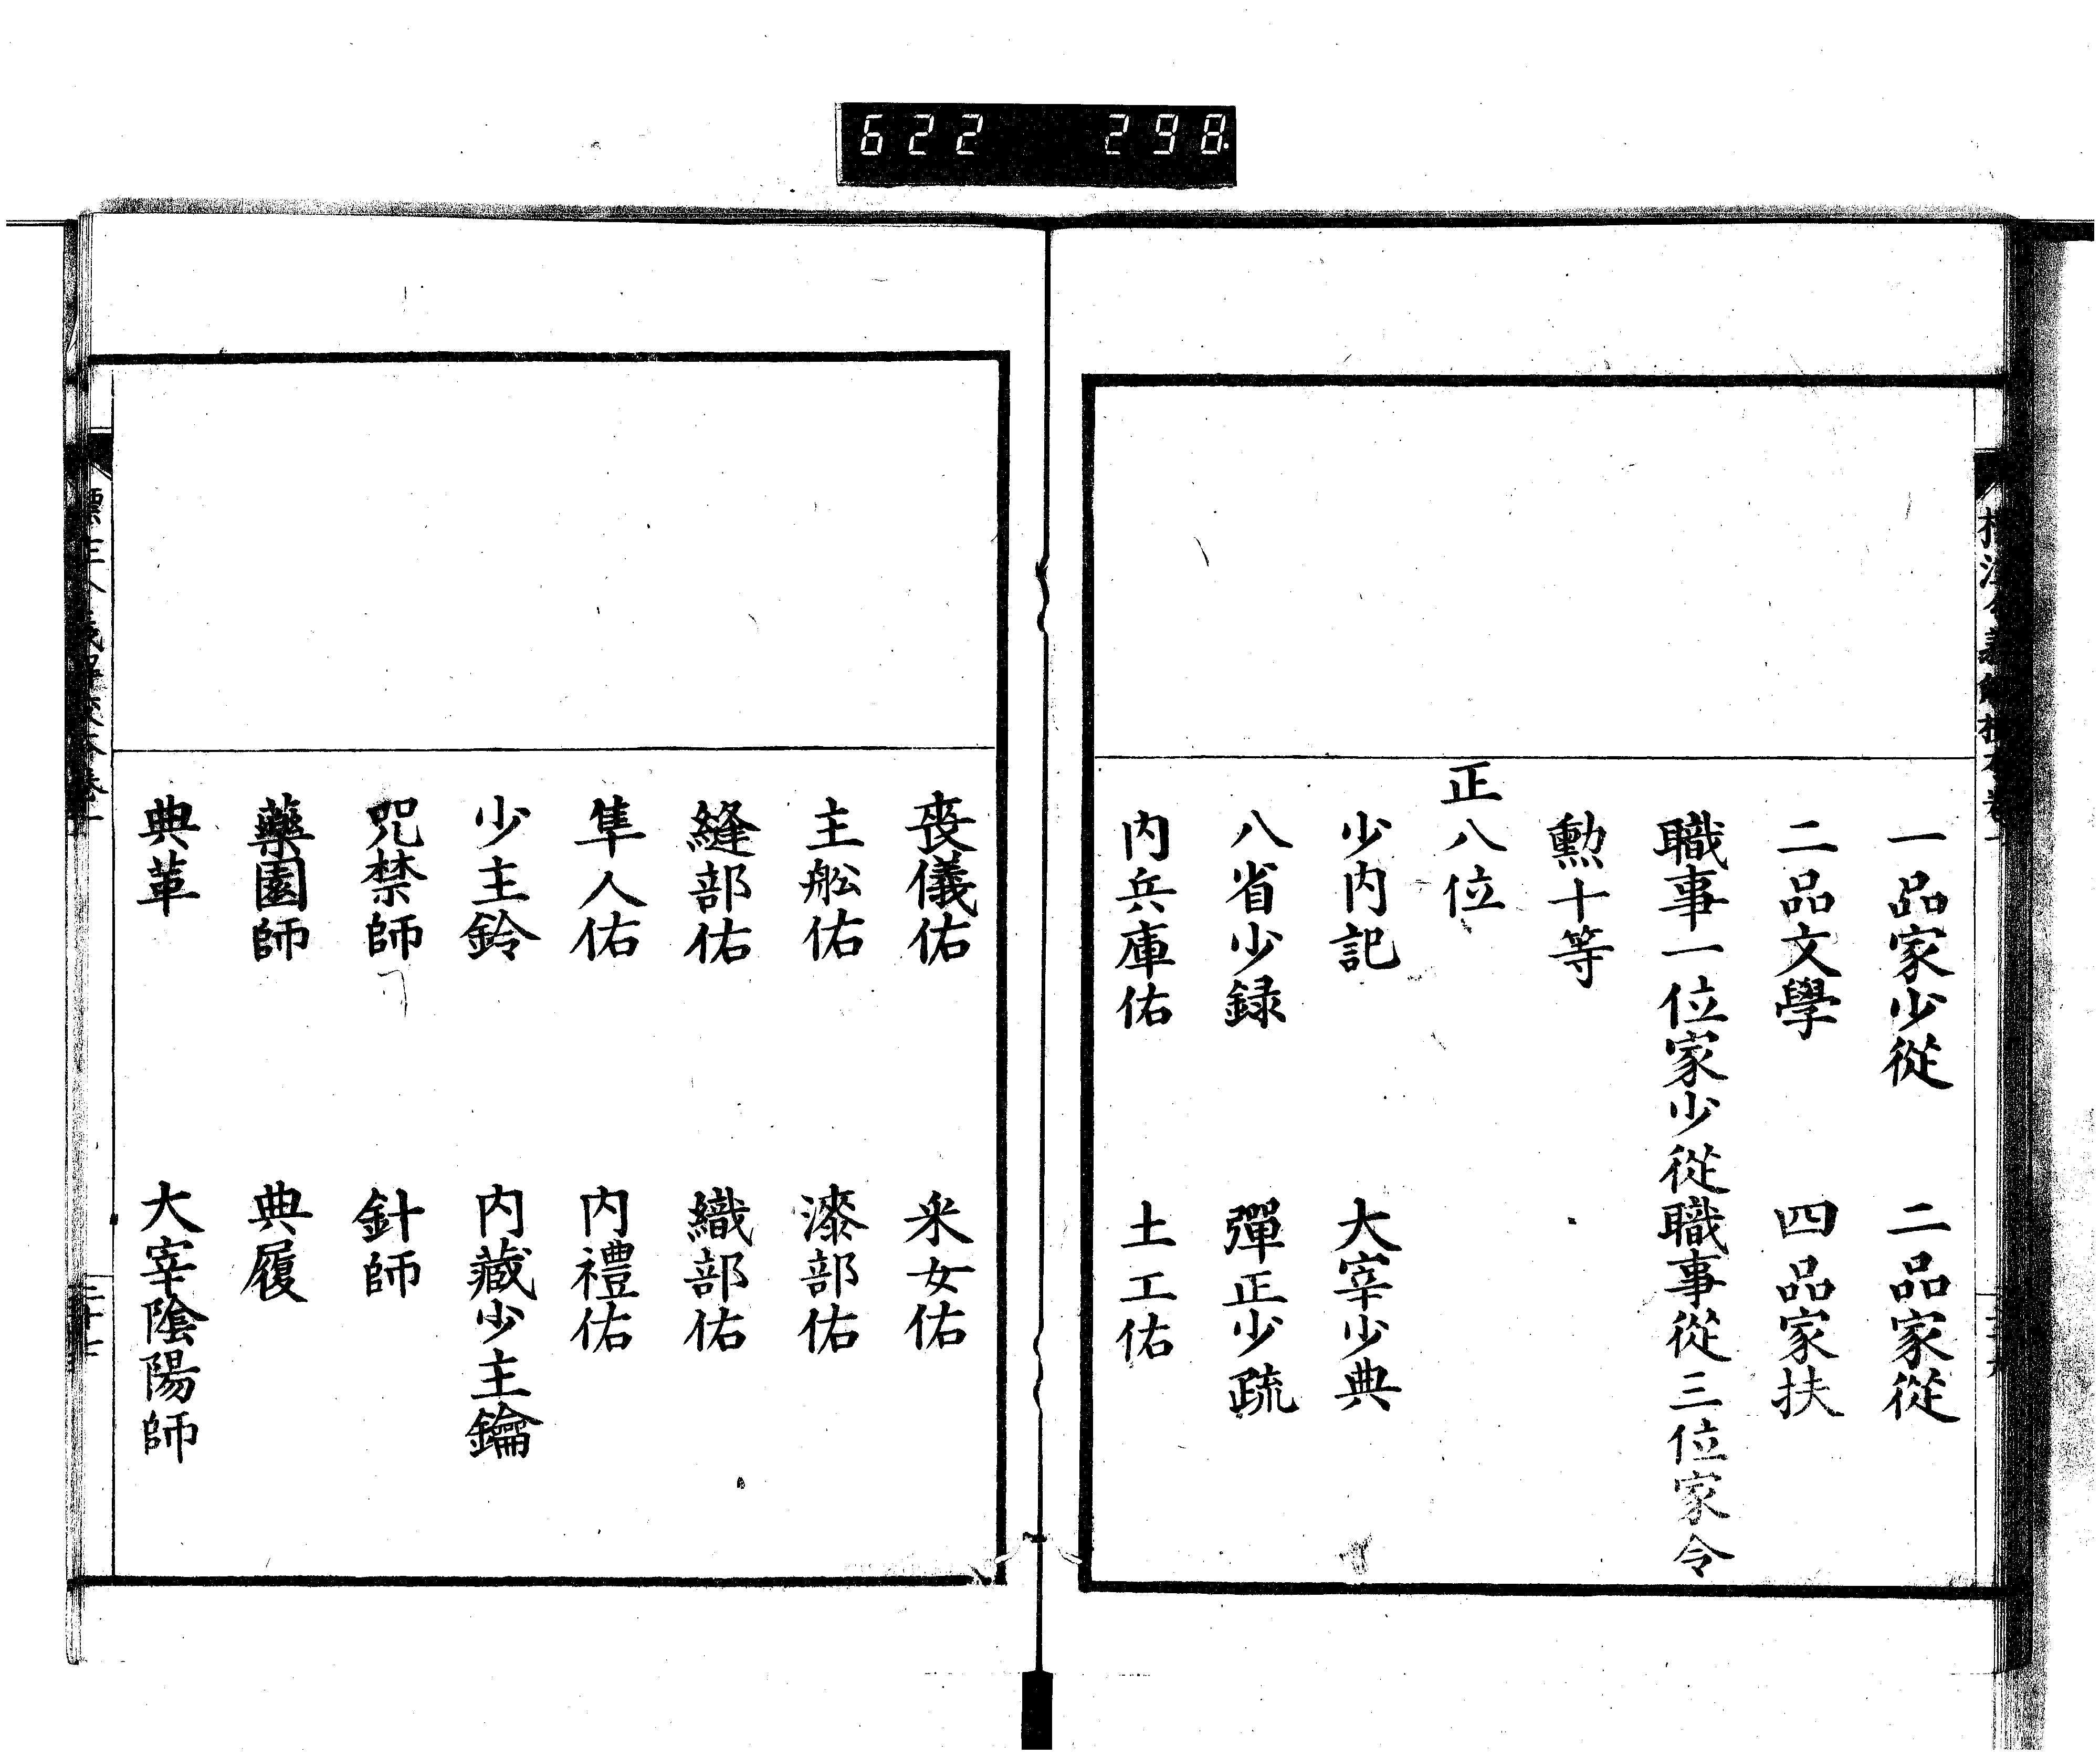 622 298
一品家少從 二品家從
二品文學 四品家扶
職事一位家少從職事從三位家令
勲十等
正八位
少内記 大宰少典
八省少録 彈正少疏
内兵庫佑 土工佑
喪儀佑 采女佑
主舩佑 漆部佑
縫部佑 織部佑
隼人佑 内禮佑
少主鈴 内藏少主鑰
咒禁師 針師
藥園師 典履
典革 大宰陰陽師